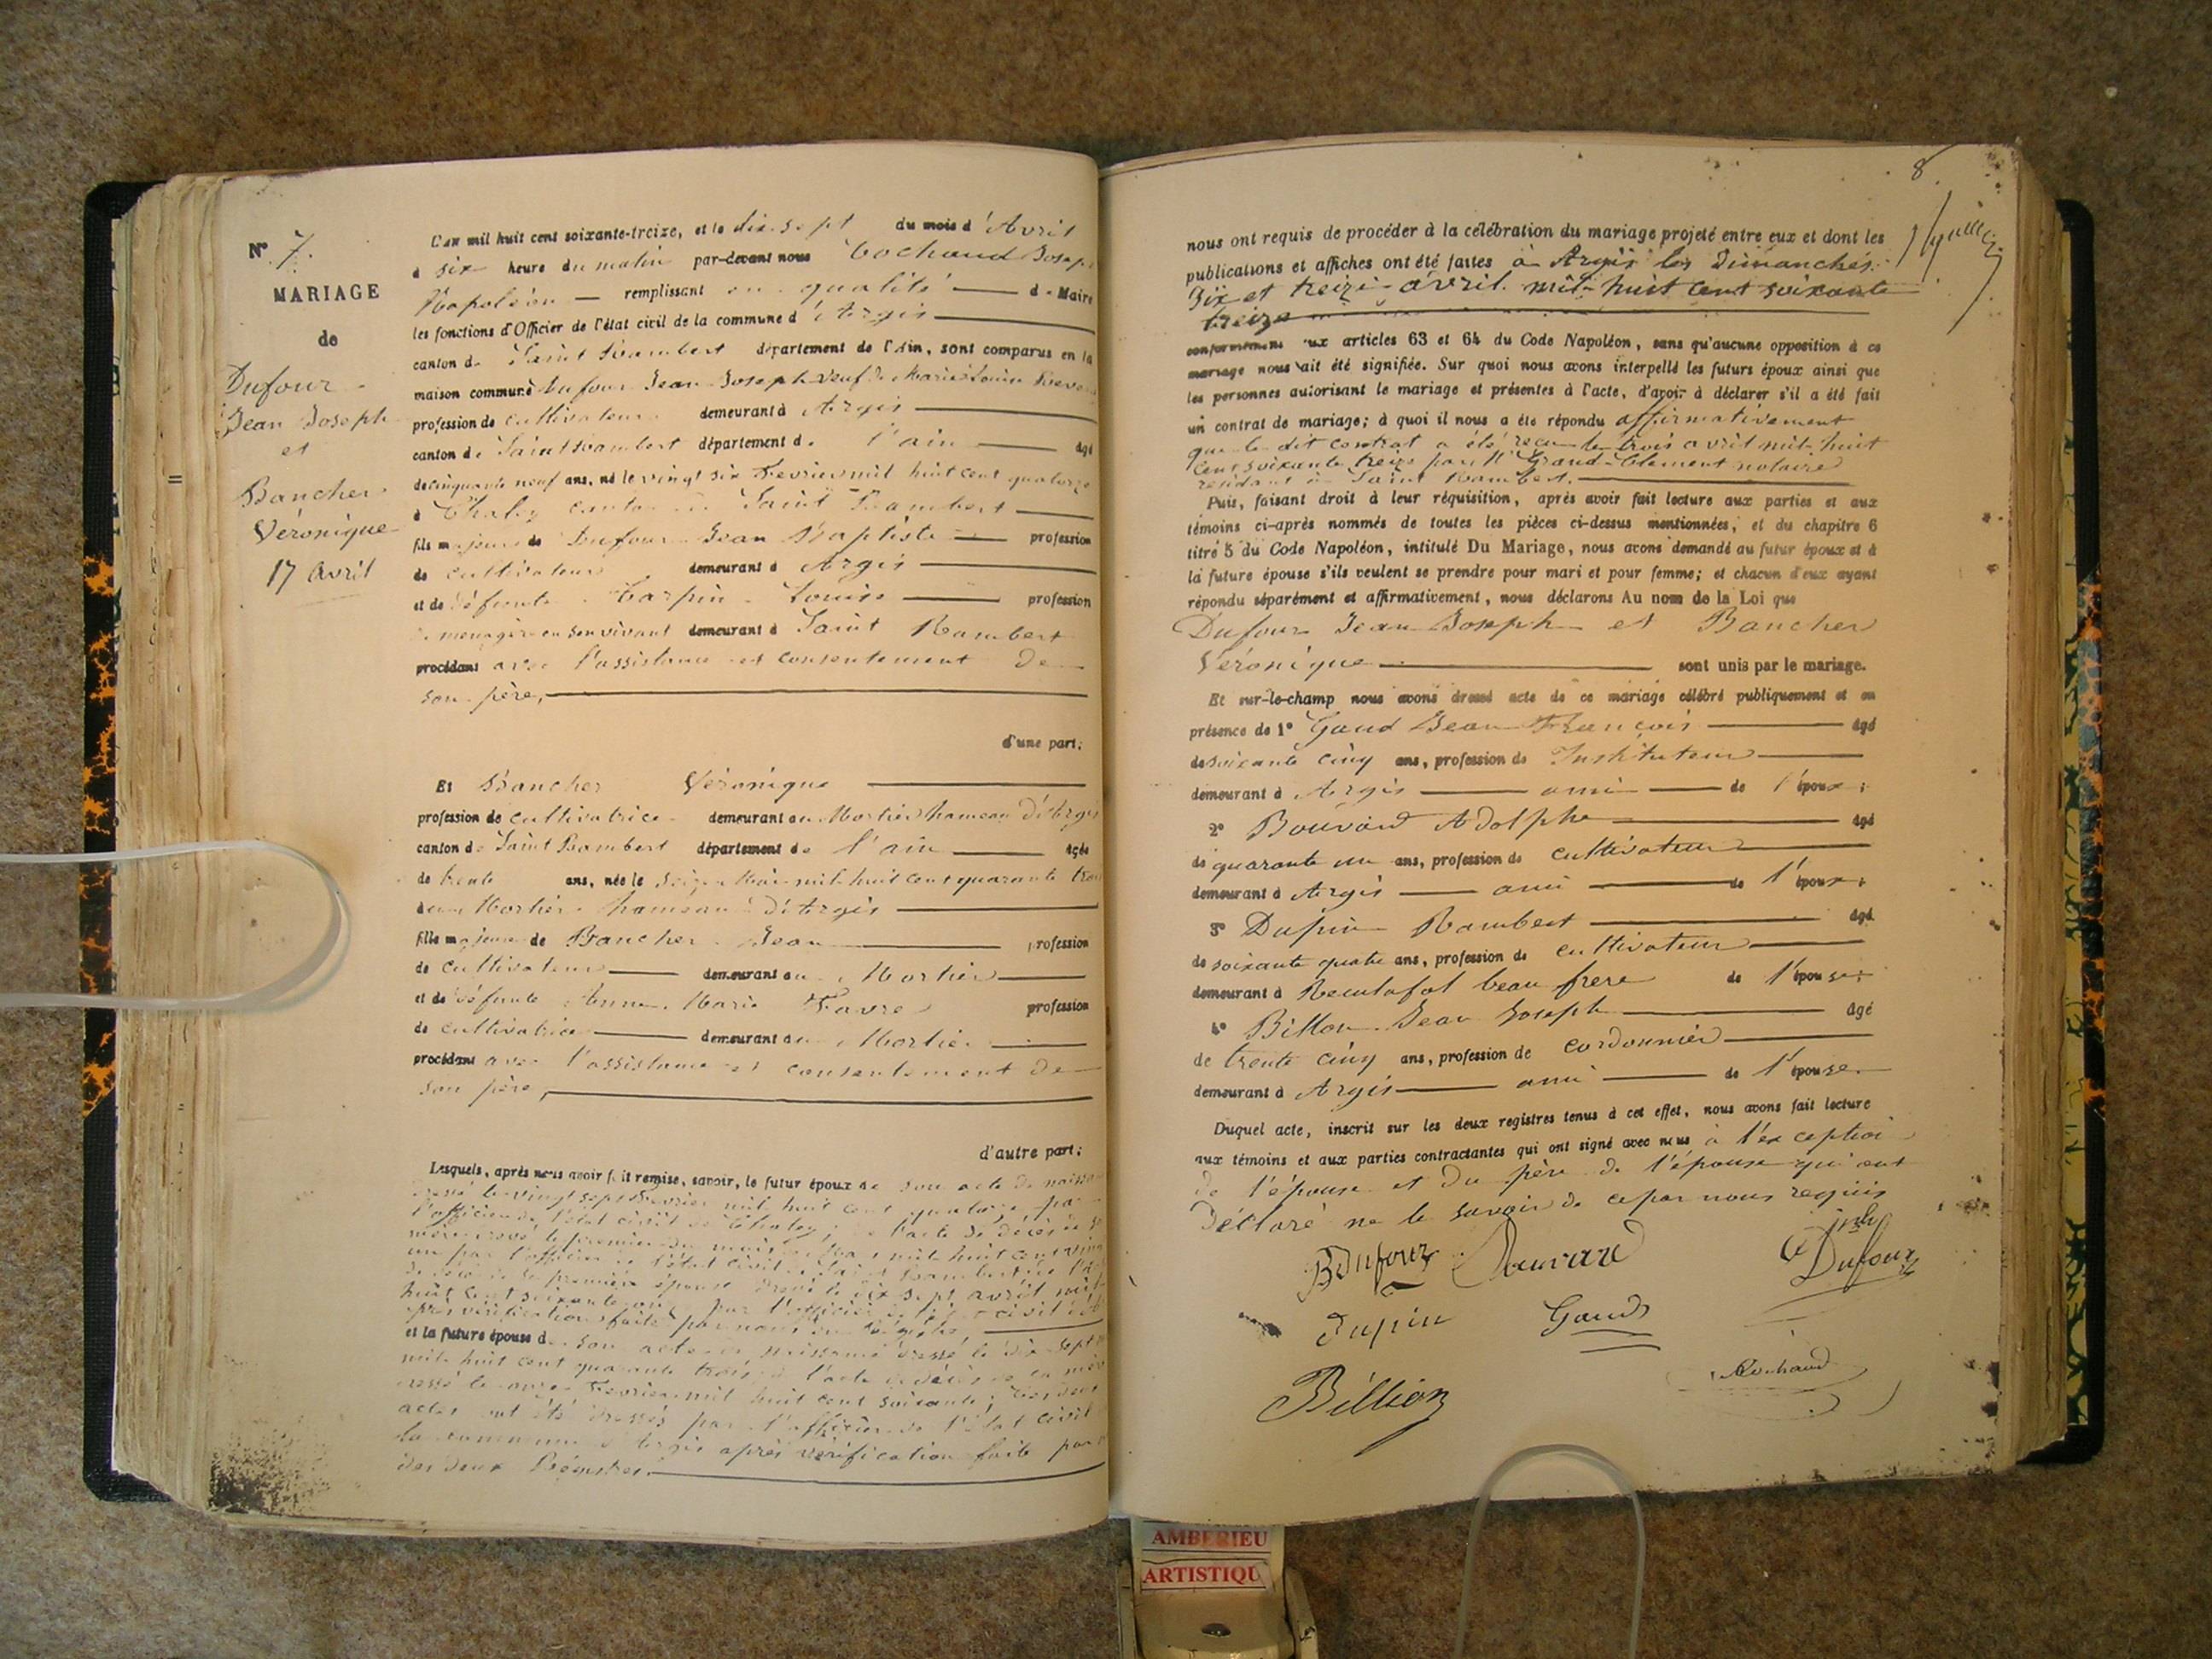 N° 7.
MARIAGE
de
Dufour
Jean Joseph
et
Bancher
Véronique
17 Avril
L'an mil huit cent soixante-treize, et le dix-sept du mois d'Avril
à six heure du matin par-devant nous Cochaud Joseph
Napoléon — remplissant en qualité — de Maire
les fonctions d'Officier de l'état civil de la commune d'Argis
canton de Saint Rambert département de l'Ain, sont comparus en la
maison commune Dufour Jean Joseph veuf de Marie Louise
profession de cultivateur demeurant à Argis
canton de Saint Rambert département de l'ain — âgé
de cinquante neuf ans, né le vingt six Fevrier mil huit cent quatorze
à Chaley canton de Saint Rambert
fils majeur de Dufour Jean Baptiste — profession
de cultivateur demeurant à Argis
et de défunte Carpin Louise — profession
de menagère en son vivant demeurant à Saint Rambert
procédant avec l'assistance et consentement de
son père,
d'une part;
Et Bancher Véronique
profession de cultivatrice demeurant au Mortier hameau d'Argis
canton de Saint Rambert département de l'ain — âgée
de trente ans, née le seize Mars mil huit cent quarante trois
au Mortier hameau d'Argis
fille majeure de Bancher Jean — profession
de cultivateur — demeurant au Mortier
et de défunte Anne Marie Favre profession
de cultivatrice — demeurant au Mortier
procédant avec l'assistance et consentement de
son père,
d'autre part;
Lesquels, après nous avoir fait remise, savoir, le futur époux de son acte de naissance
dressé le vingt sept Fevrier mil huit cent quatorze par
l'officier de l'état civil de Chaley; de l'acte de décès de sa
mère dressé le premier du mois de mil huit cent vingt
un par l'officier de l'état civil de Saint Rambert de l'acte
de décès de sa première épouse dressé le dix sept avril mil
huit cent soixante par l'officier de l'état civil
après vérification faite par nous
et la future épouse de son acte de naissance dressé le dix sept
mil huit cent quarante trois de l'acte de décès de sa mère
dressé le onze Fevrier mil huit cent soixante; ces deux
actes ont été dressés par l'officier de l'état civil
la commune d'Argis après vérification faite par
des deux Régistres.
8
nous ont requis de procéder à la célébration du mariage projeté entre eux et dont les
publications et affiches ont été faites à Argis les Dimanches
Six et treize avril mil huit cent soixante
treize
conformément aux articles 63 et 64 du Code Napoléon, sans qu'aucune opposition à ce
mariage nous ait été signifiée. Sur quoi nous avons interpellé les futurs époux ainsi que
les personnes autorisant le mariage et présentes à l'acte, d'avoir à déclarer s'il a été fait
un contrat de mariage; à quoi il nous a été répondu affirmativement
que le dit contrat a été reçu le trois avril mil huit
cent soixante treize par Mr Grand-Clement notaire
résidant à Saint Rambert.
Puis, faisant droit à leur réquisition, après avoir fait lecture aux parties et aux
témoins ci-après nommés de toutes les pièces ci-dessus mentionnées, et du chapitre 6
titre 5 du Code Napoléon, intitulé Du Mariage, nous avons demandé au futur époux et à
la future épouse s'ils veulent se prendre pour mari et pour femme; et chacun d'eux ayant
répondu séparément et affirmativement, nous déclarons Au nom de la Loi que
Dufour Jean Joseph et Bancher
Véronique — sont unis par le mariage.
Et sur-le-champ nous avons dressé acte de ce mariage célébré publiquement et en
présence de 1° Gaud Jean François — âgé
de soixante cinq ans, profession de Instituteur
demeurant à Argis — ami — de l'époux;
2° Bouvard Adolphe — âgé
de quarante un ans, profession de cultivateur
demeurant à Argis — ami — de l'époux;
3° Dupin Rambert — âgé
de soixante quatre ans, profession de cultivateur
demeurant à Reculafol beau frere de l'épouse;
4° Billon Jean Joseph — âgé
de trente cinq ans, profession de cordonnier
demeurant à Argis — ami — de l'épouse.
Duquel acte, inscrit sur les deux registres tenus à cet effet, nous avons fait lecture
aux témoins et aux parties contractantes qui ont signé avec nous à l'exception
de l'épouse et du père de l'épouse qui ont
déclaré ne le savoir de ce par nous requis
B Dufour Bouvard Dufour
Dupin Gaud
Cochaud
Billion
AMBERIEU
ARTISTIQU